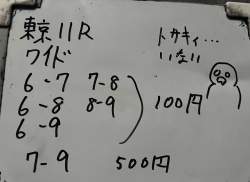 東京11R
ワイド
6-7 7-8
6-8 8-9
6-9
100円
7-9 500円
トサキィ…
いない